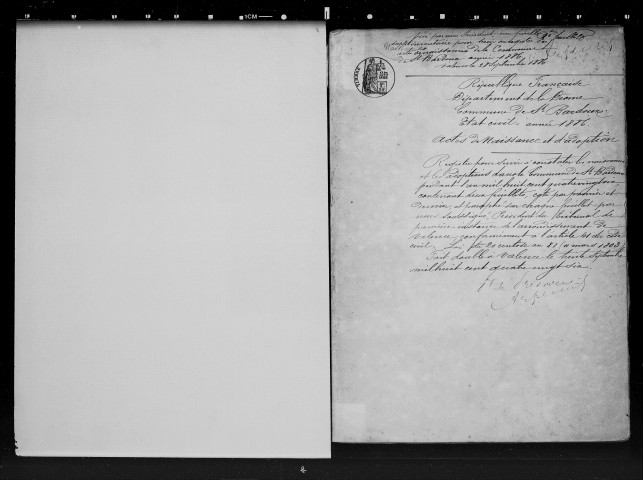 supplémentaire pour servir
de naissances de la Commune
de St Bardoux année 1886
Valence le 28 Septembre 1886
République Française
Département de la Drôme
Commune de St Bardoux
Etat civil année 1886
Actes de Naissance et d'adoption
Registre pour servir à constater les naissances
et les adoptions dans la Commune de St Bardoux
pendant l'an mil huit cent quatre vingt six
contenant deux feuillets, coté par premier et
dernier, et paraphé sur chaque feuillet par
nous soussigné, Président du Tribunal de
première instance de l'arrondissement de
Valence, conformément à l'article 41 du code
civil. Loi du 20 ventôse an XI (11 mars 1803)
Fait double à Valence le trente Septembre
mil huit cent quatre vingt six
CM